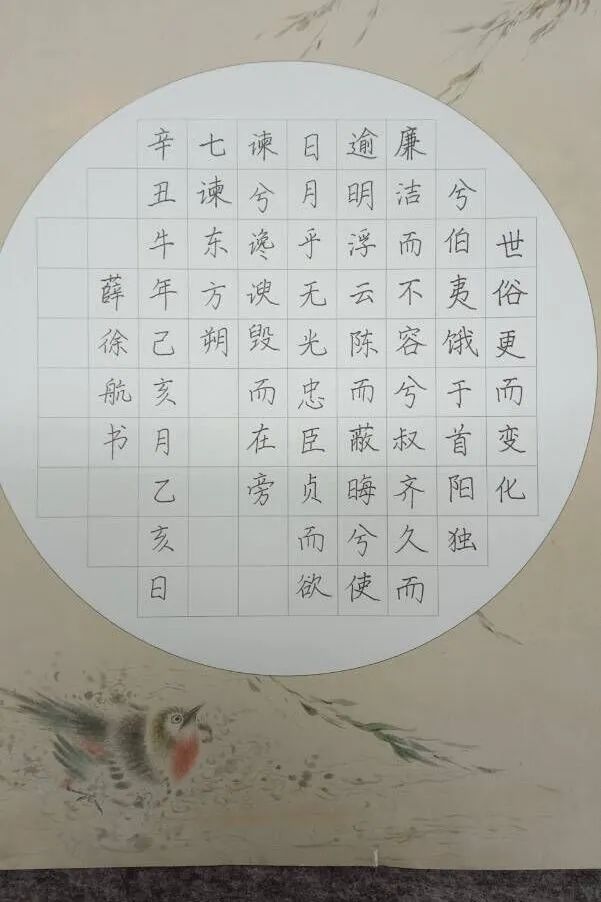 世俗更而变化
兮伯夷饿于首阳独
廉洁而不容兮叔齐久而
逾明浮云陈而蔽晦兮使
日月乎无光忠臣贞而欲
谏兮谗谀毁而在旁
七谏东方朔
辛丑牛年己亥月乙亥日
薛徐航书